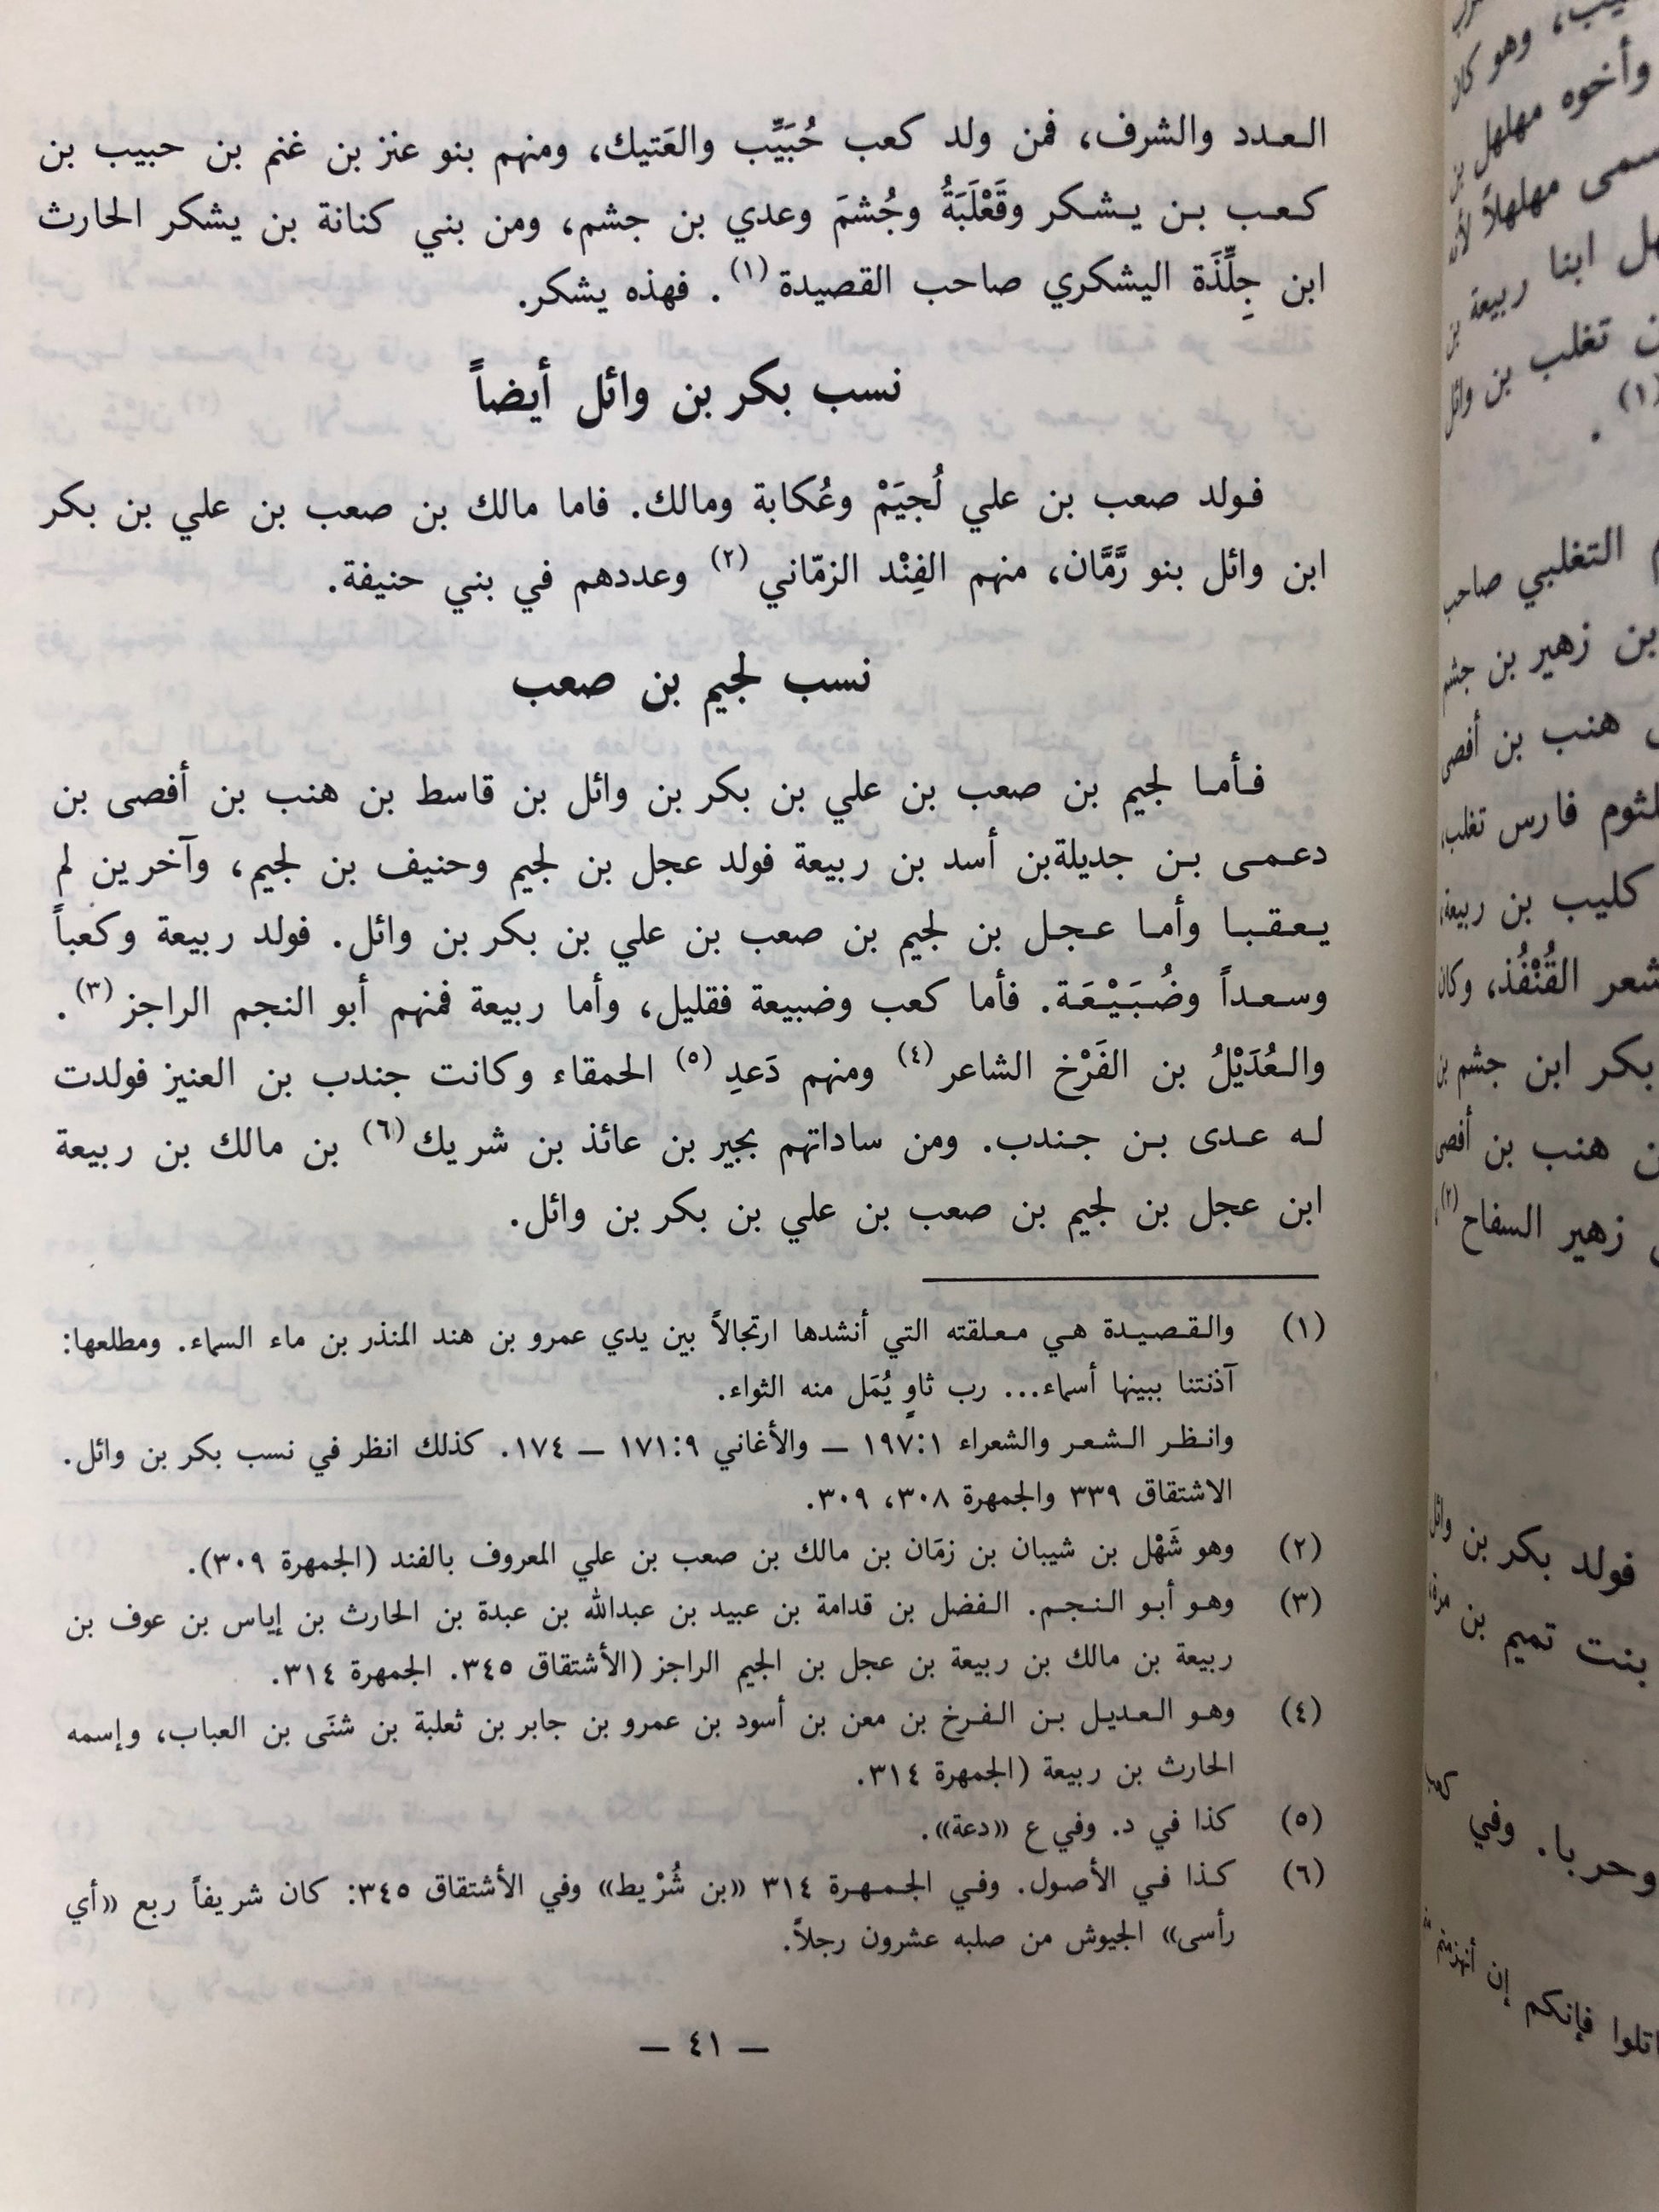 العدد والشرف، فمن ولد كعب حُبَيِّب والعَتيك، ومنهم بنو عنز بن غنم بن حبيب بن
كعب بن يشكر وقَعْلَبَةُ وجُشمَ وعدي بن جشم، ومن بني كنانة بن يشكر الحارث
ابن جِلِّذَة اليشكري صاحب القصيدة (١) . فهذه يشكر.
نسب بكر بن وائل أيضاً
فولد صعب بن علي لُجيَمْ وعُكابة ومالك. فاما مالك بن صعب بن علي بن بكر
ابن وائل بنو رَّمَّان، منهم الفِنْد الزمّاني (٢) وعددهم في بني حنيفة.
نسب لجيم بن صعب
فأما لجيم بن صعب بن علي بن بكر بن وائل بن قاسط بن هنب بن أفصى بن
دعمى بن جديلةبن أسد بن ربيعة فولد عجل بن لجيم وحنيف بن لجيم، وآخرين لم
يعقبا وأما عجل بن لجيم بن صعب بن علي بن بكر بن وائل. فولد ربيعة وكعباً
وسعداً وضُبَيْعَة. فأما كعب وضبيعة فقليل، وأما ربيعة فمنهم أبو النجم الراجز (٣) .
والعُدَيْلُ بن الفَرْخ الشاعر (٤) ومنهم دَعدِ (٥) الحمقاء وكانت جندب بن العنيز فولدت
له عدى بن جندب. ومن ساداتهم بجير بن عائذ بن شريك (٦) بن مالك بن ربيعة
ابن عجل بن لجيم بن صعب بن علي بن بكر بن وائل.
(١) والقصيدة هي معلقته التي أنشدها ارتجالاً بين يدي عمرو بن هند المنذر بن ماء السماء. ومطلعها:
آذنتنا ببينها أسماء... رب ثاوٍ يُمَل منه الثواء.
وانظر الشعر والشعراء ١٩٧:١ ــ والأغاني ١٧١:٩ ــ ١٧٤. كذلك انظر في نسب بكر بن وائل.
الاشتقاق ٣٣٩ والجمهرة ٣٠٨، ٣٠٩.
(٢) وهو شَهْل بن شيبان بن زمَان بن مالك بن صعب بن علي المعروف بالفند (الجمهرة ٣٠٩).
(٣) وهو أبو النجم. الفضل بن قدامة بن عبيد بن عبدالله بن عبدة بن الحارث بن إياس بن عوف بن
ربيعة بن مالك بن ربيعة بن عجل بن الجيم الراجز (الأشتقاق ٣٤٥. الجمهرة ٣١٤.
(٤) وهو العديل بن الفرخ بن معن بن أسود بن عمرو بن جابر بن ثعلبة بن شنَى بن العباب، وإسمه
الحارث بن ربيعة (الجمهرة ٣١٤.
(٥) كذا في د. وفي ع «دعة».
(٦) كذا في الأصول. وفي الجمهرة ٣١٤ «بن شُرْيط» وفي الأشتقاق ٣٤٥: كان شريفاً ربع «أي
رأسى» الجيوش من صلبه عشرون رجلاً.
ــ ٤١ ــ
وهو كان
وأخوه مهلهل بن
مهلهلاً
ابنا ربيعة بن
تغلب بن وائل
(١) .
التغلبي صاحب
بن زهير بن جشم
هنب بن أفصى
فارس تغلب،
كليب بن ربيعة،
القُنْفُذ، وكان
بكر ابن جشم بن
هنب بن أفصى
زهير السفاح (٢)
فولد بكر بن وائل
بنت تميم بن
وحربا. وفي
فإنكم إن